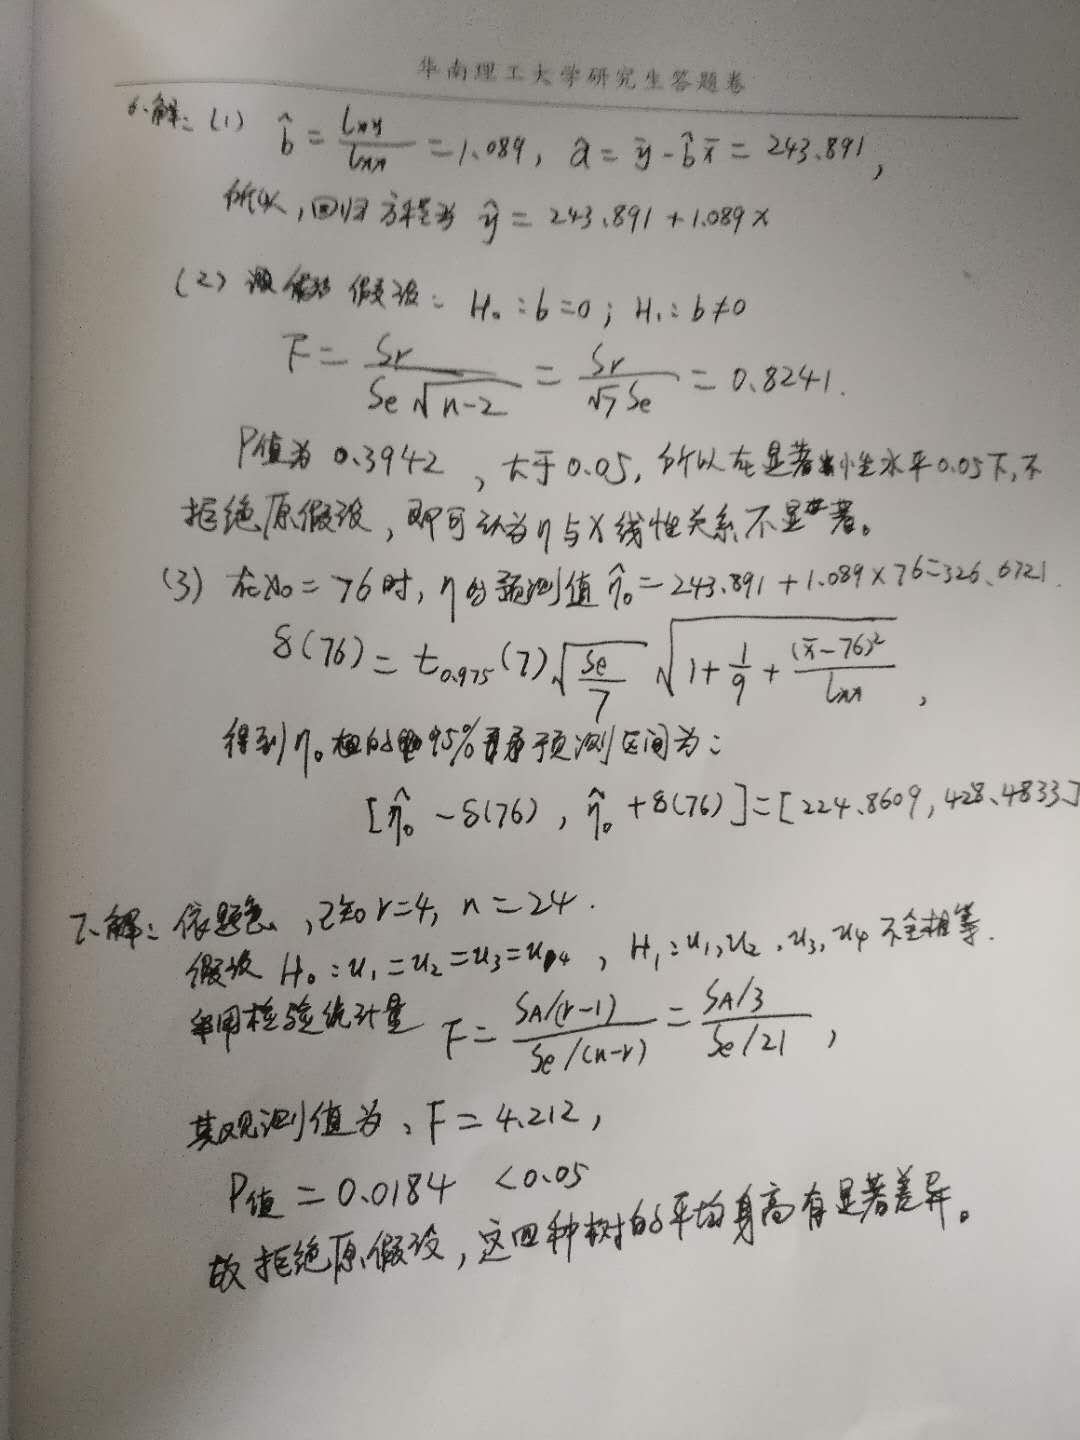 华南理工大学研究生答题卷
6、解：(1) b̂ = lxy/lxx = 1.089, â = ȳ - b̂x̄ = 243.891,
所以, 回归方程为 ŷ = 243.891 + 1.089x
(2) 假设： H₀：b=0； H₁：b≠0
F = Sr/(Se√(n-2)) = Sr/(√7 Se) = 0.8241.
P值为 0.3942, 大于0.05, 所以在显著性水平0.05下, 不
拒绝原假设, 即可认为η与x线性关系不显著。
(3) 在x₀=76时, η的预测值 η̂₀ = 243.891 + 1.089×76 = 326.6721.
δ(76) = t₀.₉₇₅(7) √(Se/7) √(1 + 1/9 + (x̄-76)²/lxx),
得到η₀的95%预测区间为：
[η̂₀ - δ(76), η̂₀ + δ(76)] = [224.8609, 428.4833]
7、解：依题意, 已知 r=4, n=24.
假设 H₀：u₁=u₂=u₃=u₄, H₁：u₁,u₂,u₃,u₄不全相等.
采用检验统计量 F = (SA/(r-1))/(Se/(n-r)) = (SA/3)/(Se/21),
其观测值为, F = 4.212,
P值 = 0.0184 < 0.05
故拒绝原假设, 这四种树的平均身高有显著差异。